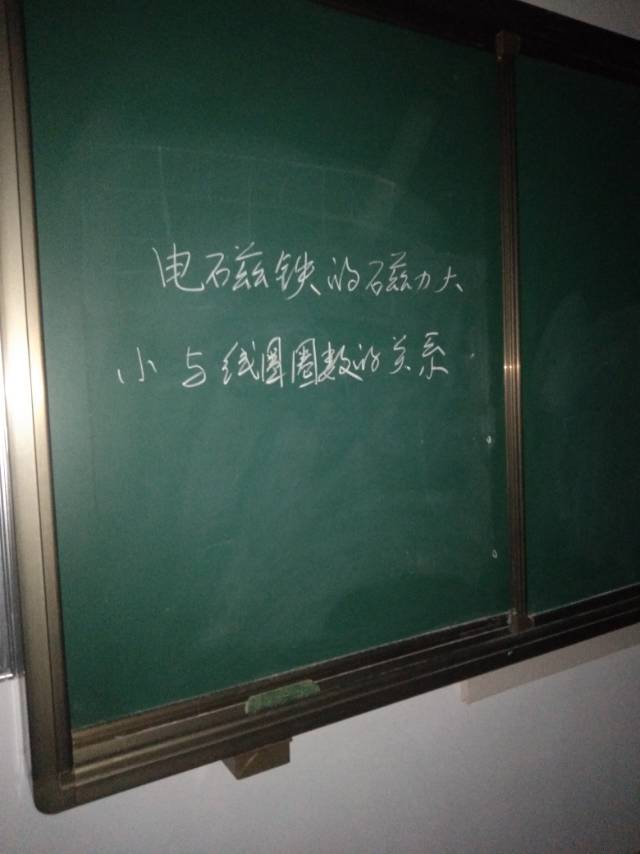 电磁铁的磁力大
小与线圈圈数的关系